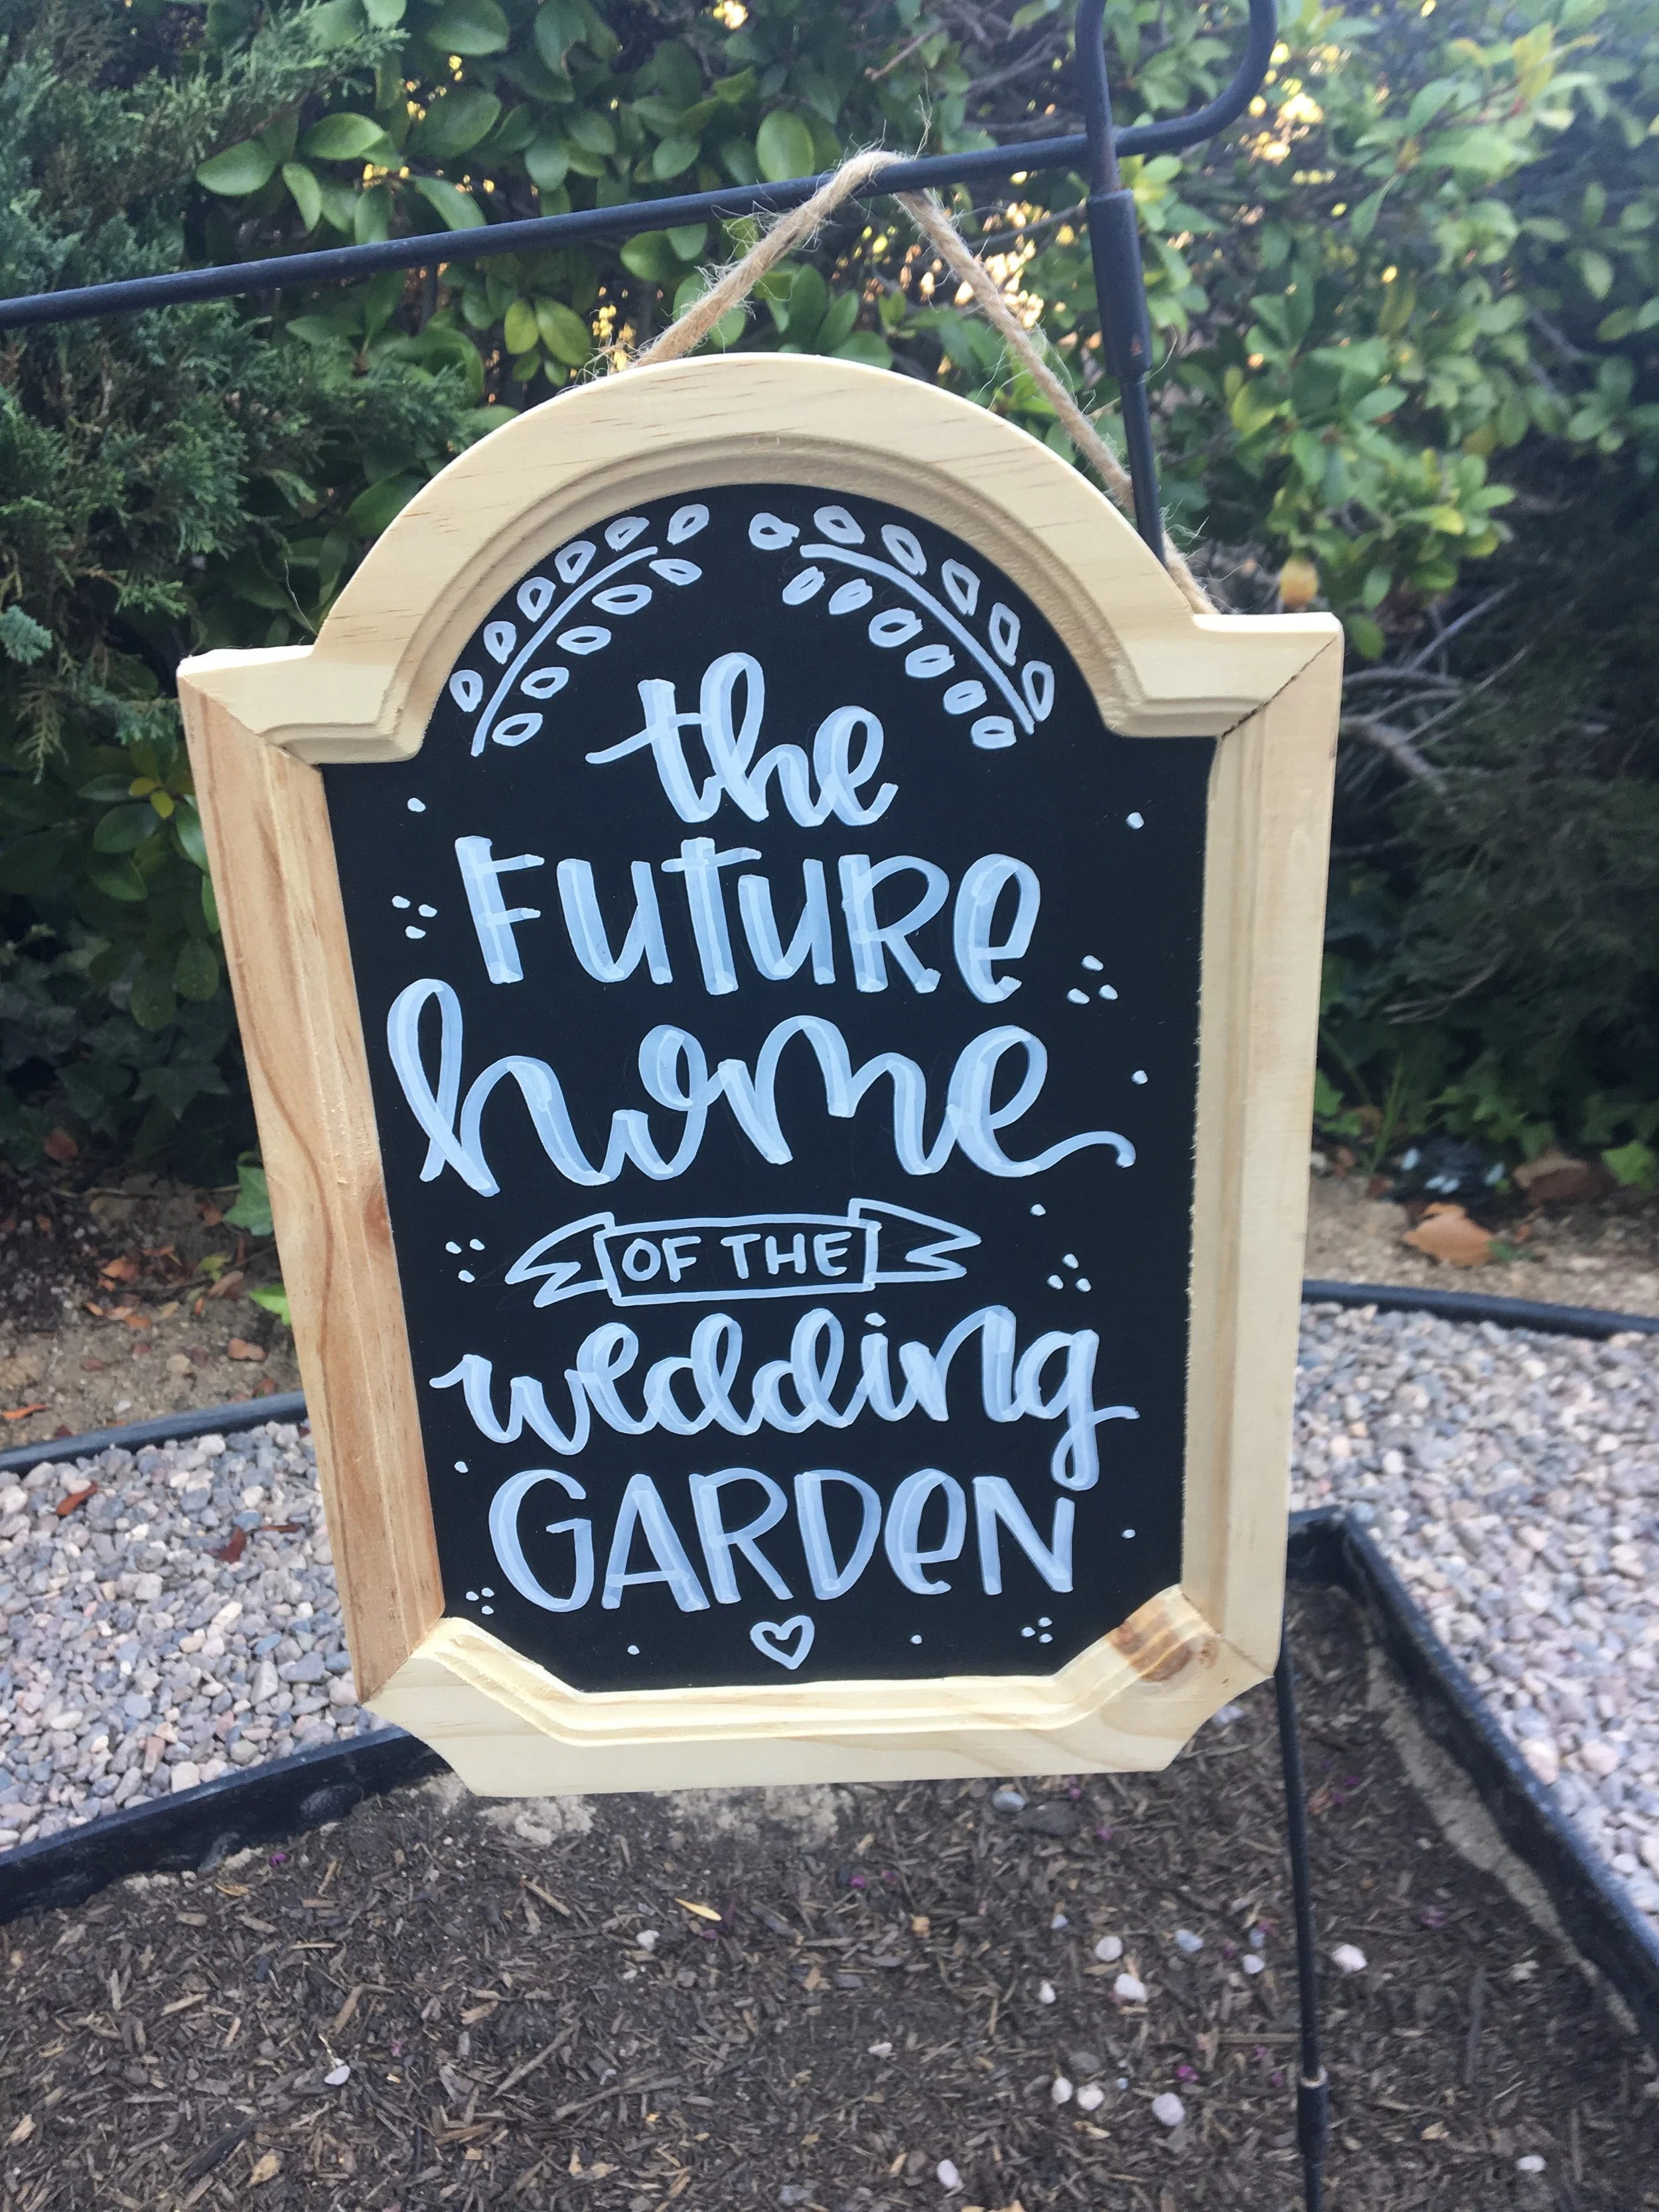 the
FUTURe
home
OF THE
wedding
GARDeN